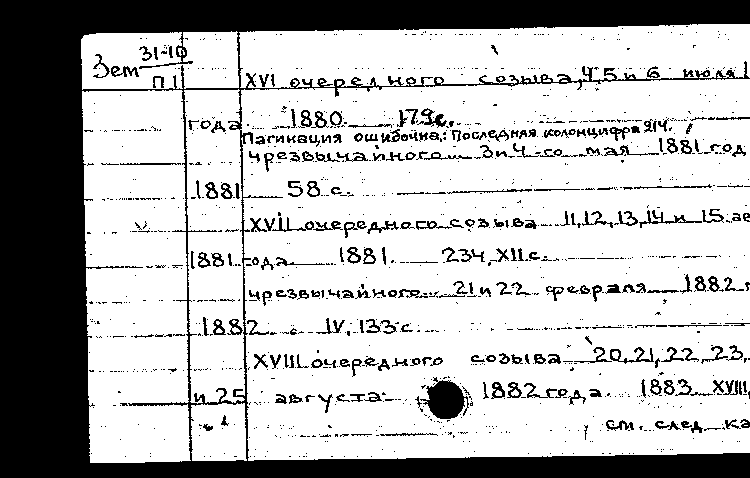 31-10
Зем П1
XVI очередного созыва, 4, 5 и 6 июля 1
года 1880. 179 с.
Пагинация ошибочна: Последняя колонцифра 214.
чрезвычайного 3 и 4-го мая 1881 год
1881 58 с.
XVII очередного созыва 11, 12, 13, 14 и 15 ав
1881 года. 1881. 234, XII с.
чрезвычайного 21 и 22 февраля 1882 г
1882. IV, 133 с.
XVIII очередного созыва 20, 21, 22, 23,
и 25 августа 1882 года. 1883. XVIII,
см. след ка